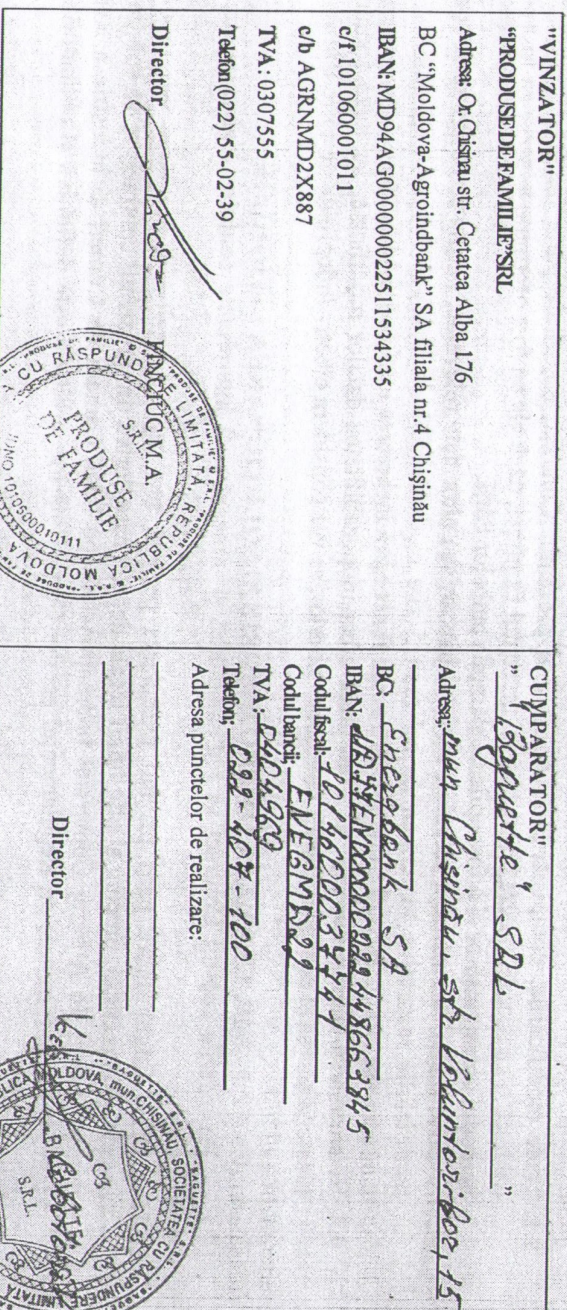 "VINZATOR"
“PRODUSE DE FAMILIE”SRL
Adresa: Or.Chisinau str. Cetatea Alba 176
BC “Moldova-Agroindbank” SA filiala nr.4 Chişinău
IBAN: MD94AG000000022511534335
c/f 101060001011
c/b AGRNMD2X887
TVA: 0307555
Telefon(022) 55-02-39
Director
PINCIUC M.A.
CU RĂSPUNDERE LIMITATĂ REPUBLICA MOLDOVA
PRODUSE DE FAMILIE
S.R.L.
CUMPARATOR"
" "Baguette" SRL "
Adresa: mun Chișinău, str. Voluntarilor, 15
BC: Energbank SA
IBAN:
Codul fiscal: 1014600037741
Codul bancii:
TVA: 0404969
Telefon: 022-407-100
Adresa punctelor de realizare:
Director
MOLDOVA, mun.CHIŞINĂU, SOCIETATEA CU RĂSPUNDERE LIMITATĂ
BAGUETTE
S.R.L.